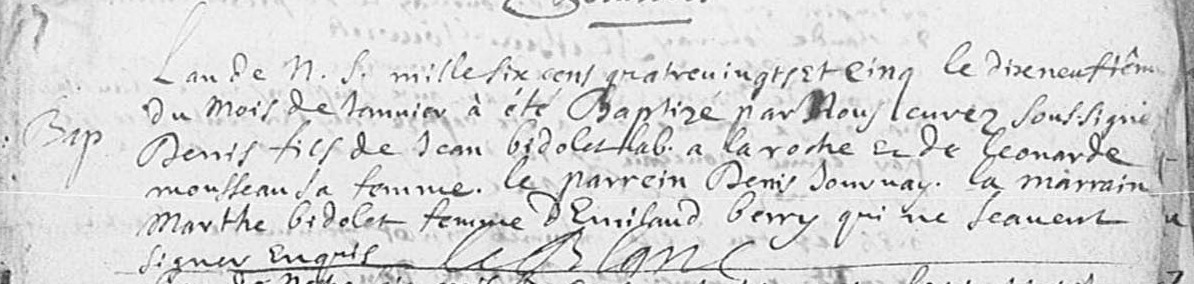 Lan de N. S. mille six cens quatre vingts et cinq le dixeneufiême
Bap
du mois de Januier à été Baptizé par Nous curez soussigné
Denis fils de Jean bidolet lab. a la roche et de leonarde
mousseau sa femme. le parrein Denis Journay. la marraine
Marthe bidolet femme d'Emiland berry qui ne scauent
signer Enquis leBlanc